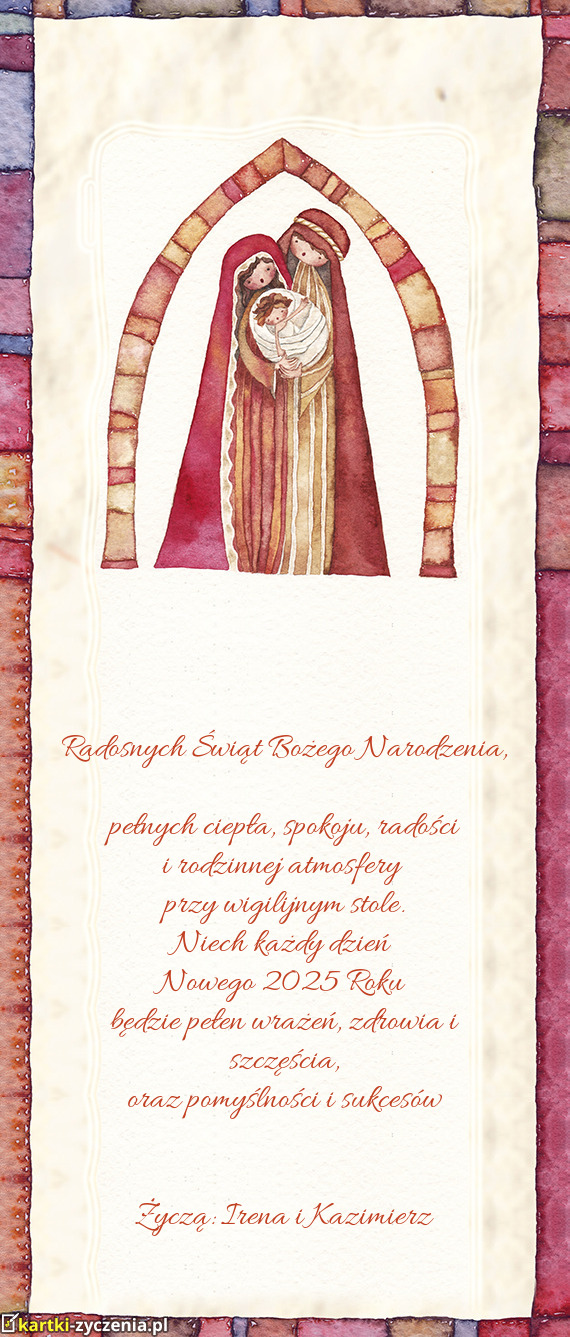 Radosnych Świąt Bożego Narodzenia,
pełnych ciepła, spokoju, radości
i rodzinnej atmosfery
przy wigilijnym stole.
Niech każdy dzień
Nowego 2025 Roku
będzie pełen wrażeń, zdrowia i
szczęścia,
oraz pomyślności i sukcesów
Życzą: Irena i Kazimierz
kartki-zyczenia.pl